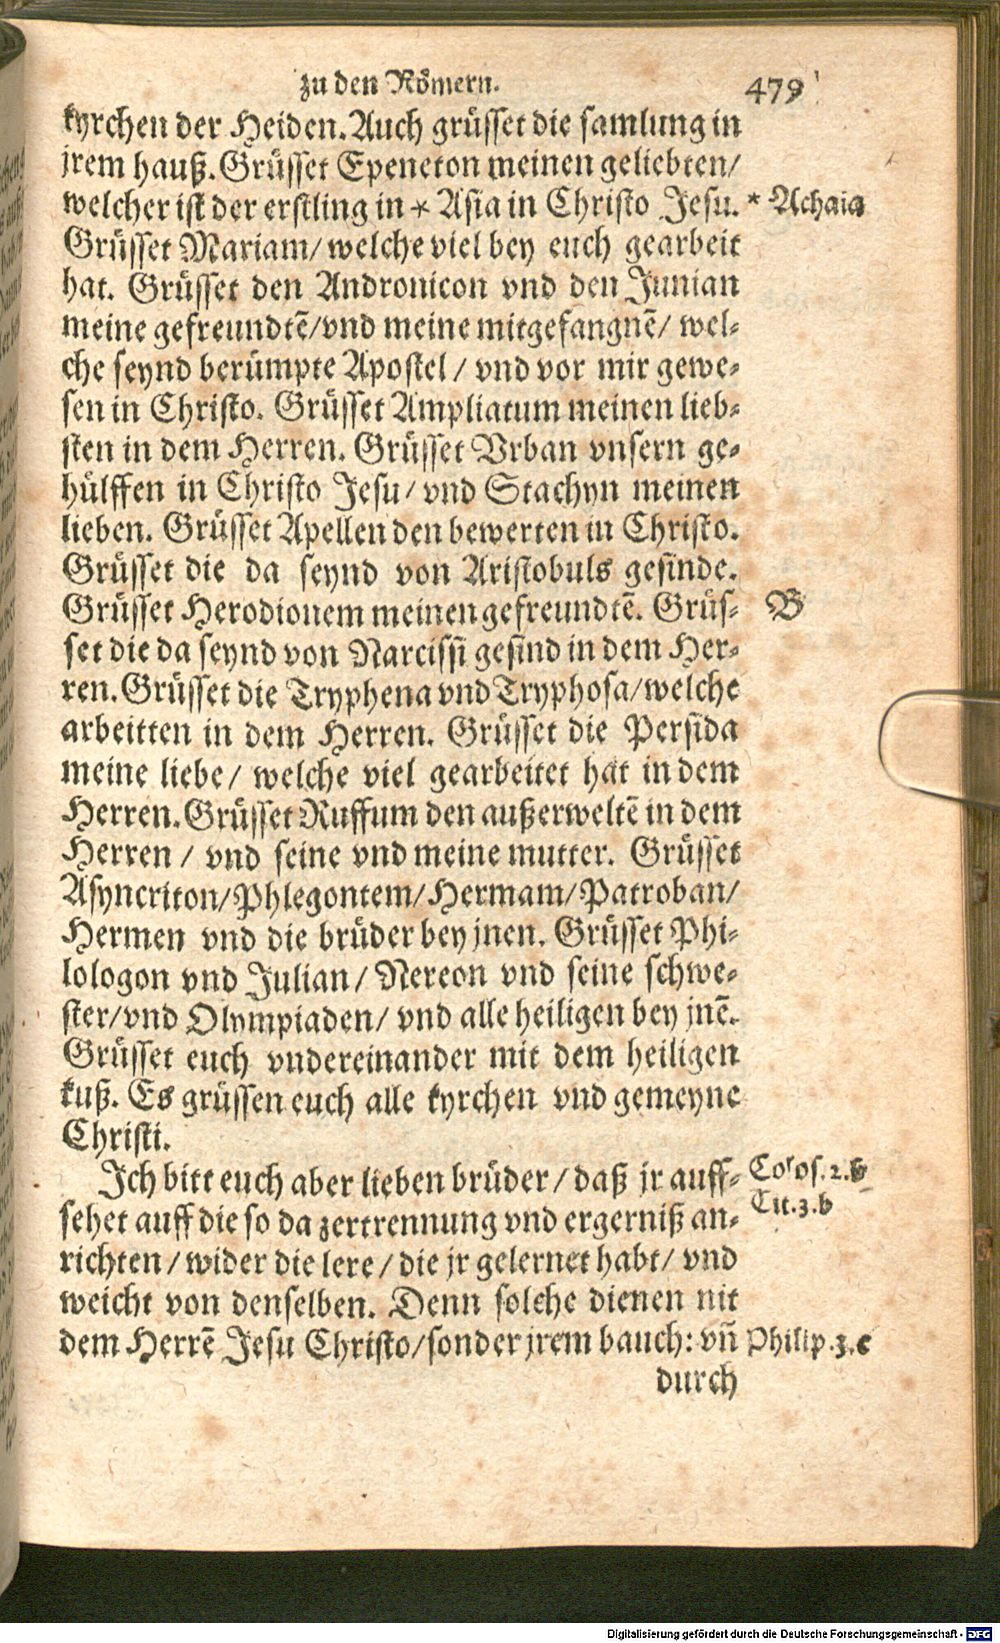 zu den Roͤmern. 479
kyrchen der Heiden. Auch gruͤsset die samlung in
jrem hauß. Gruͤsset Epeneton meinen geliebten/
welcher ist der erstling in * Asia in Christo Jesu. * Achaia
Gruͤsset Mariam/ welche viel bey euch gearbeit
hat. Gruͤsset den Andronicon vnd den Junian
meine gefreundtẽ/ vnd meine mitgefangnẽ/ wel-
che seynd beruͤmpte Apostel/ vnd vor mir gewe-
sen in Christo. Gruͤsset Ampliatum meinen lieb-
sten in dem Herren. Gruͤsset Vrban vnsern ge-
huͤlffen in Christo Jesu/ vnd Stachyn meinen
lieben. Gruͤsset Apellen den bewerten in Christo.
Gruͤsset die da seynd von Aristobuls gesinde.
Gruͤsset Herodionem meinen gefreundtẽ. Gruͤs- B
set die da seynd von Narcissi gesind in dem Her-
ren. Gruͤsset die Tryphena vnd Tryphosa/ welche
arbeitten in dem Herren. Gruͤsset die Persida
meine liebe/ welche viel gearbeitet hat in dem
Herren. Gruͤsset Ruffum den außerweltẽ in dem
Herren/ vnd seine vnd meine mutter. Gruͤsset
Asyncriton/ Phlegontem/ Hermam/ Patroban/
Hermen vnd die bruͤder bey jnen. Gruͤsset Phi-
lologon vnd Julian/ Nereon vnd seine schwe-
ster/ vnd Olympiaden/ vnd alle heiligen bey jnẽ.
Gruͤsset euch vndereinander mit dem heiligen
kuß. Es gruͤssen euch alle kyrchen vnd gemeyne
Christi.
Ich bitt euch aber lieben bruͤder/ daß jr auff- Colos. 2. b
sehet auff die so da zertrennung vnd ergerniß an- Tit. 3. b
richten/ wider die lere/ die jr gelernet habt/ vnd
weicht von denselben. Denn solche dienen nit
dem Herrẽ Jesu Christo/ sonder jrem bauch: vñ Philip. 3. c
durch
Digitalisierung gefördert durch die Deutsche Forschungsgemeinschaft - DFG